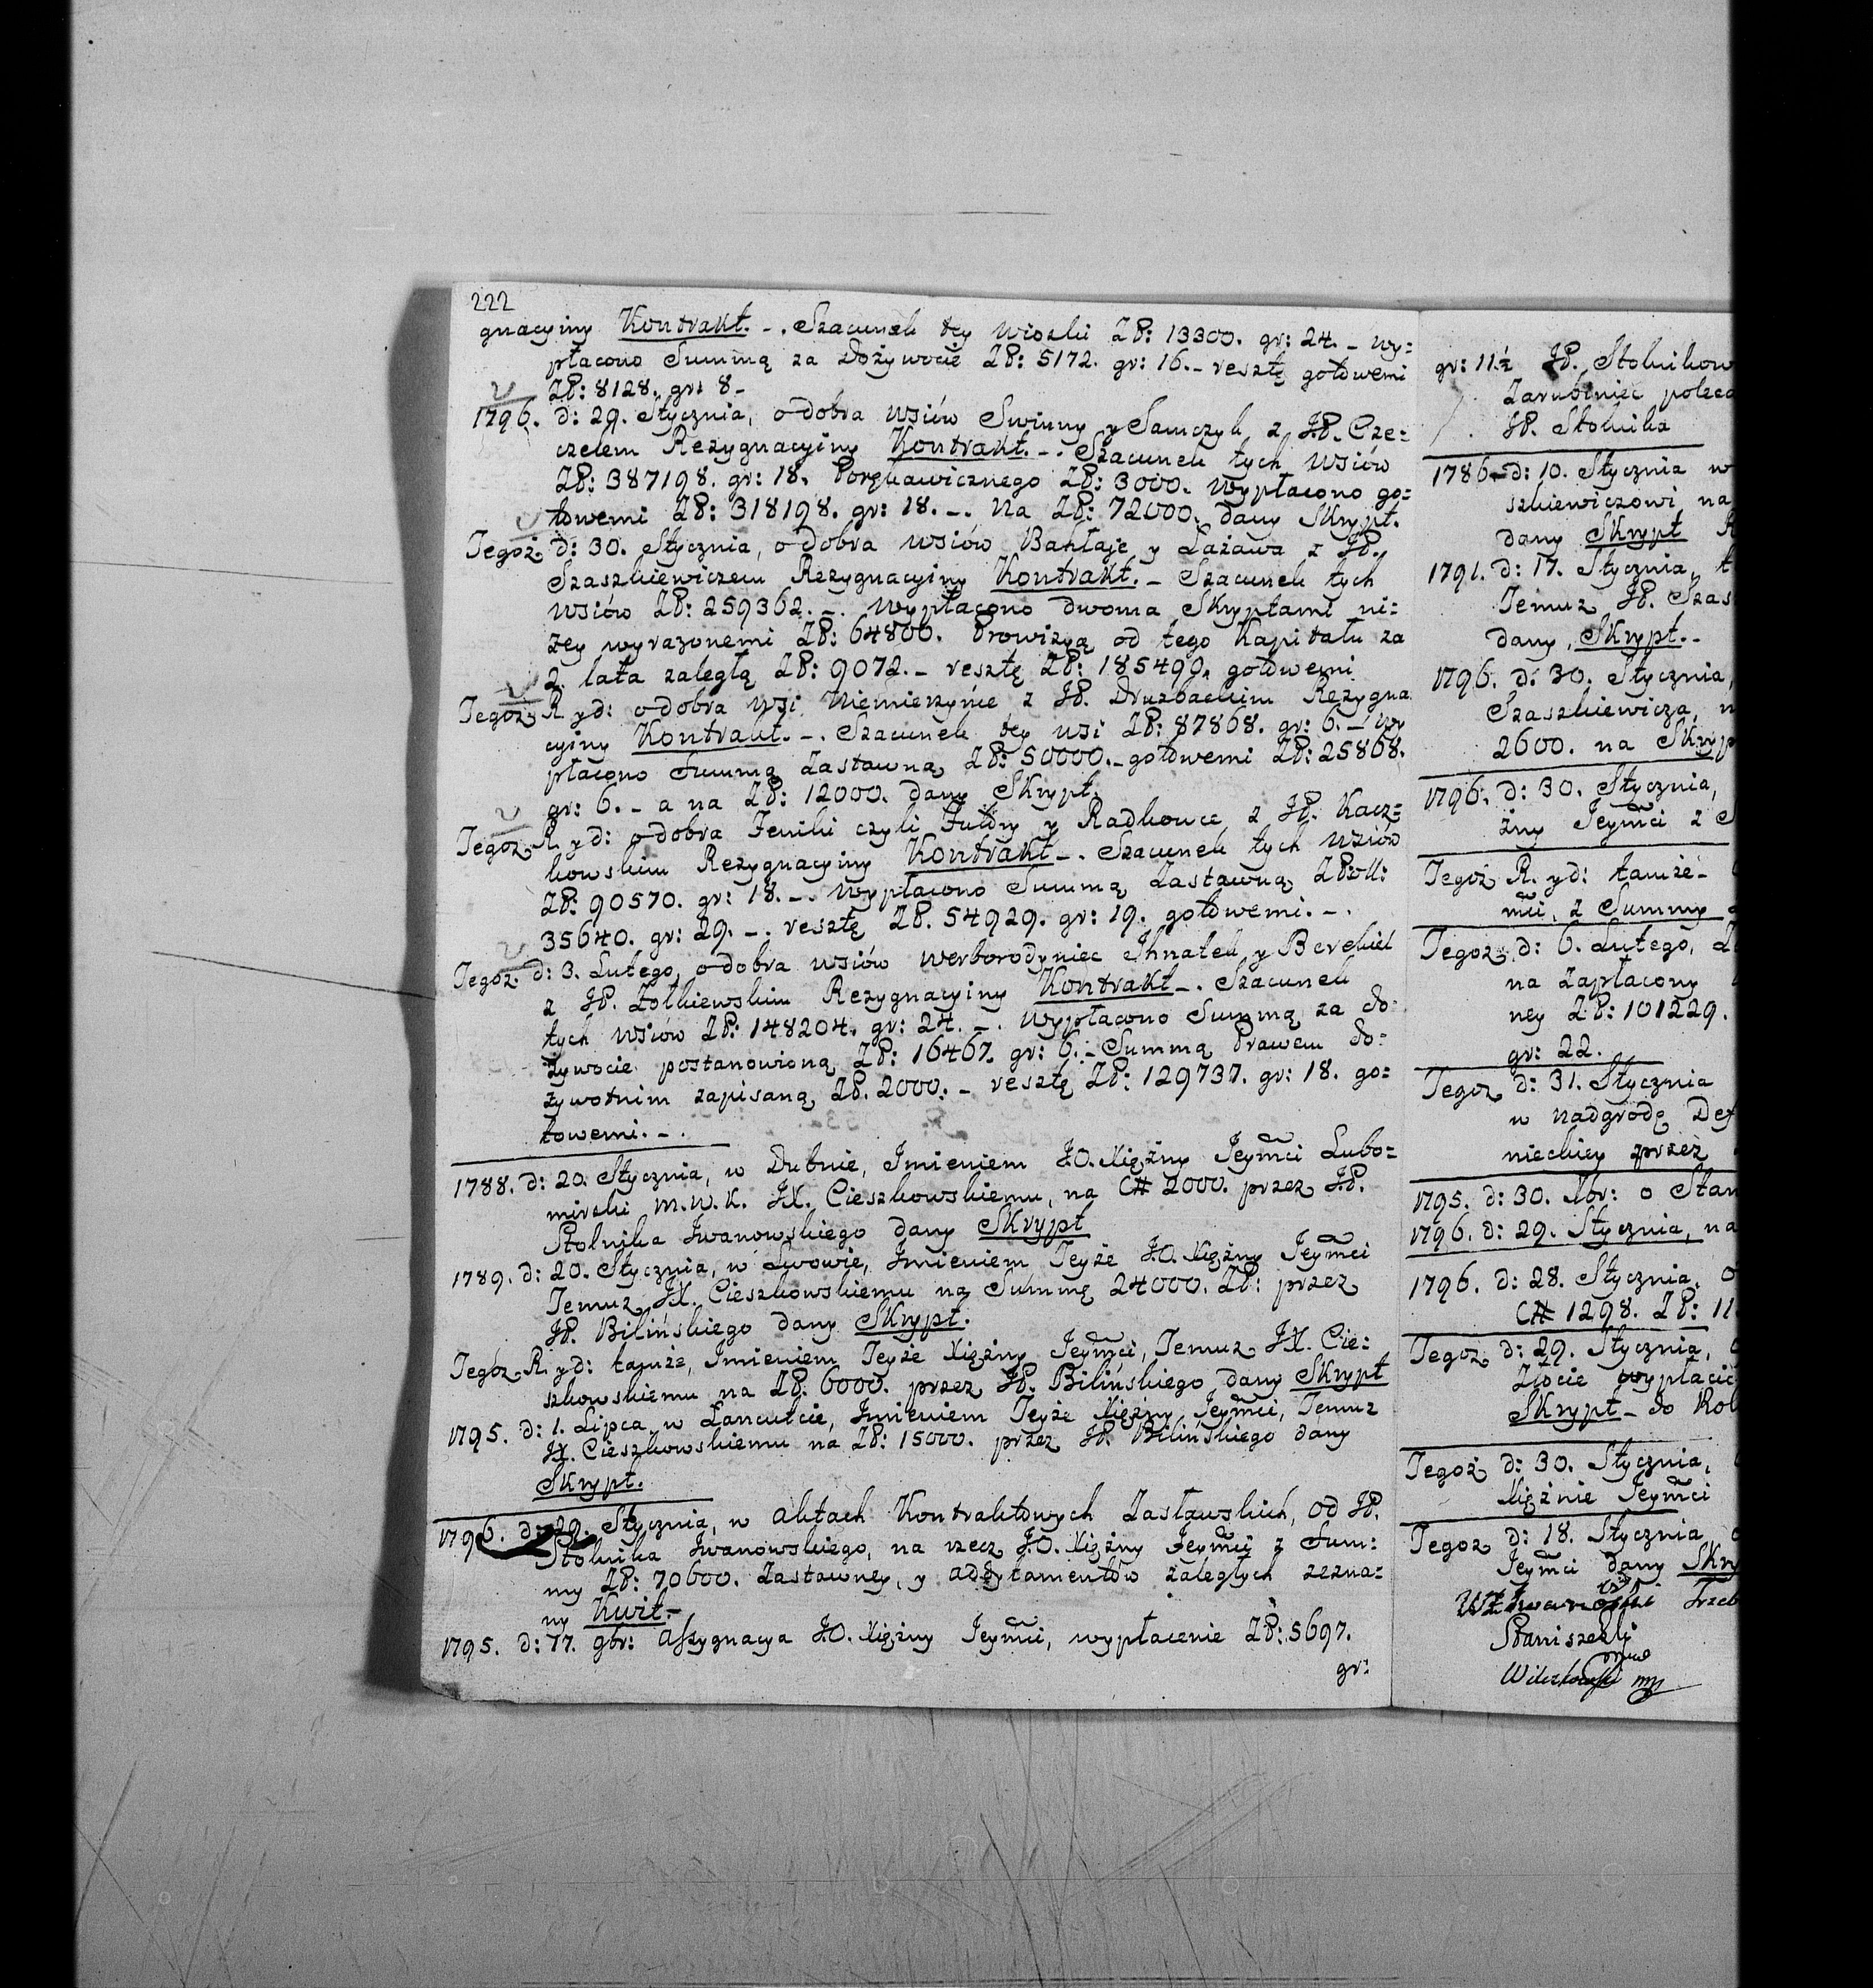 222
gnacyiny Kontrakt. -. Szacunek tey Wioski ZP: 13300. gr: 24. - wy=
płacono Summą za Dożywocie ZP: 5172. gr: 16. - resztę gotowemi
ZP: 8128. gr: 8 -
1796. d: 29. Stycznia, o dobra wsiów Swinny y Samczyk z JP. Cze=
czelem Rezygnacyiny Kontrakt. -. Szacunek tych Wsiów
ZP: 387198. gr: 18. Porękawicznego ZP: 3000. Wypłacono go=
towemi ZP: 318198. gr: 18. -. Na ZP: 72000. dany Skrypt.
Tegoż d: 30. Stycznia, o dobra wsiów Bahłaje y Łażawa z JP.
Szaszkiewiczem Rezygnacyiny Kontrakt. - Szacunek tych
wsiów ZP: 259362. -. Wypłacono dwoma Skryptami ni=
żey wyrażonemi ZP: 64800. Prowizyą od tego Kapitału za
2. lata zaległą ZP: 9072. - resztę ZP: 185490. gotowemi
Tegoż R. y d: o dobra wsi Niemierzyńce z JP. Druzbackim Rezygna
cyiny Kontrakt. -. Szacunek tey wsi ZP: 87868. gr: 6. - wy
płacono Summą Zastawną ZP: 50000. - gotowemi ZP: 25868.
gr: 6. - a na ZP: 12000. dany Skrypt.
Tegoż R. y d: o dobra Jeniki czyli Futory y Radkowce z JP. Kacz=
kowskim Rezygnacyiny Kontrakt -. Szacunek tych wsiów
ZP: 90570. gr: 18. -. Wypłacono Summą Zastawną ZPoll:
35640. gr: 29. -. resztę ZP. 54929. gr: 19. gotowemi. -.
Tegoż d: 3. Lutego, o dobra wsiów Werborodyniec Ihnatek y Berekiel
z JP. Żołkiewskim Rezygnacyiny Kontrakt -. Szacunek
tych wsiów ZP: 148204. gr: 24. -. Wypłacono Summą za do=
żywocie postanowioną ZP: 16467. gr: 6. - Summą Prawem do=
żywotnim zapisaną ZP. 2000. - resztę ZP: 129737. gr: 18. go=
towemi. -.
1788. d: 20. Stycznia, w Dubnie, Imieniem J.O. Xiężny Jeymci Lubo=
mirski M.W.K. JX. Cieszkowskiemu, na C# 2000. przez JP.
Stolnika Iwanowskiego dany Skrypt
1789. d: 20. Stycznia, w Lwowie, Imieniem Teyże J.O. Xiężny Jeymci
Temuż JX. Cieszkowskiemu na Summę 24000. ZP: przez
JP. Bilińskiego dany Skrypt.
Tegoż R. y d: tamże, Imieniem Teyże Xiężny Jeymci, Temuż JX. Cie=
szkowskiemu na ZP. 6000. przez JP. Bilińskiego dany Skrypt
1795. d: 1. Lipca w Łancutcie, Imieniem Teyże Xiężny Jeymci, Temuż
JX. Cieszkowskiemu na ZP: 15000. przez JP. Bilińskiego dany
Skrypt.
1796. d: 29. Stycznia, w Aktach Kontraktowych Zasławskich, od JP.
Stolnika Iwanowskiego, na rzecz J.O. Xiężny Jeymci z Sum=
my ZP: 70600. Zastawney, y addytamentów zaległych zezna=
ny Kwit. -
1795. d: 17. 9br: Assygnacya J.O. Xiężny Jeymci, wypłacenie ZP: 5697.
gr:
gr: 11.½ JP. Stolnikow
Zarubiniec poleca
JP. Stolnika
1786 - d: 10. Stycznia w
szkiewiczowi na
dany Skrypt
1791. d: 17. Stycznia, t
Temuż JP. Szas
dany Skrypt. -
1796. d: 30. Stycznia,
Szaszkiewicza, n
2600. na Skryp
1796. d: 30. Stycznia,
żny Jeymci z
Tegoż R. y d: tamże -
mci, z Summy
Tegoż d: 6. Lutego,
na zapłacony
ney ZP: 101229.
gr: 22.
Tegoż d: 31. Stycznia
w nadgrodę Def
nieckiey przez
1795. d: 30. Xbr: o Stan
1796. d: 29. Stycznia, na
1796. d: 28. Stycznia,
C# 1298. ZP: 11
Tegoż d: 29. Stycznia,
Złocie wypłacić
Skrypt - do Kol
Tegoż d: 30. Stycznia,
Xiężnie Jeymci
Tegoż d: 18. Stycznia
Jeymci dany Skry
Iwanowski Trzeb
Staniszewski
Wilczkowski mp